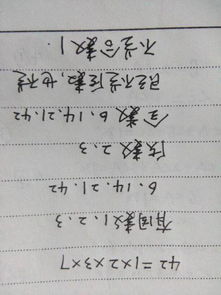 42=1×2×3×7
有因数1.2.3
6.14.21.42
质数2.3
合数6.14.21.42
既不是质数,也不是
不是合数1.